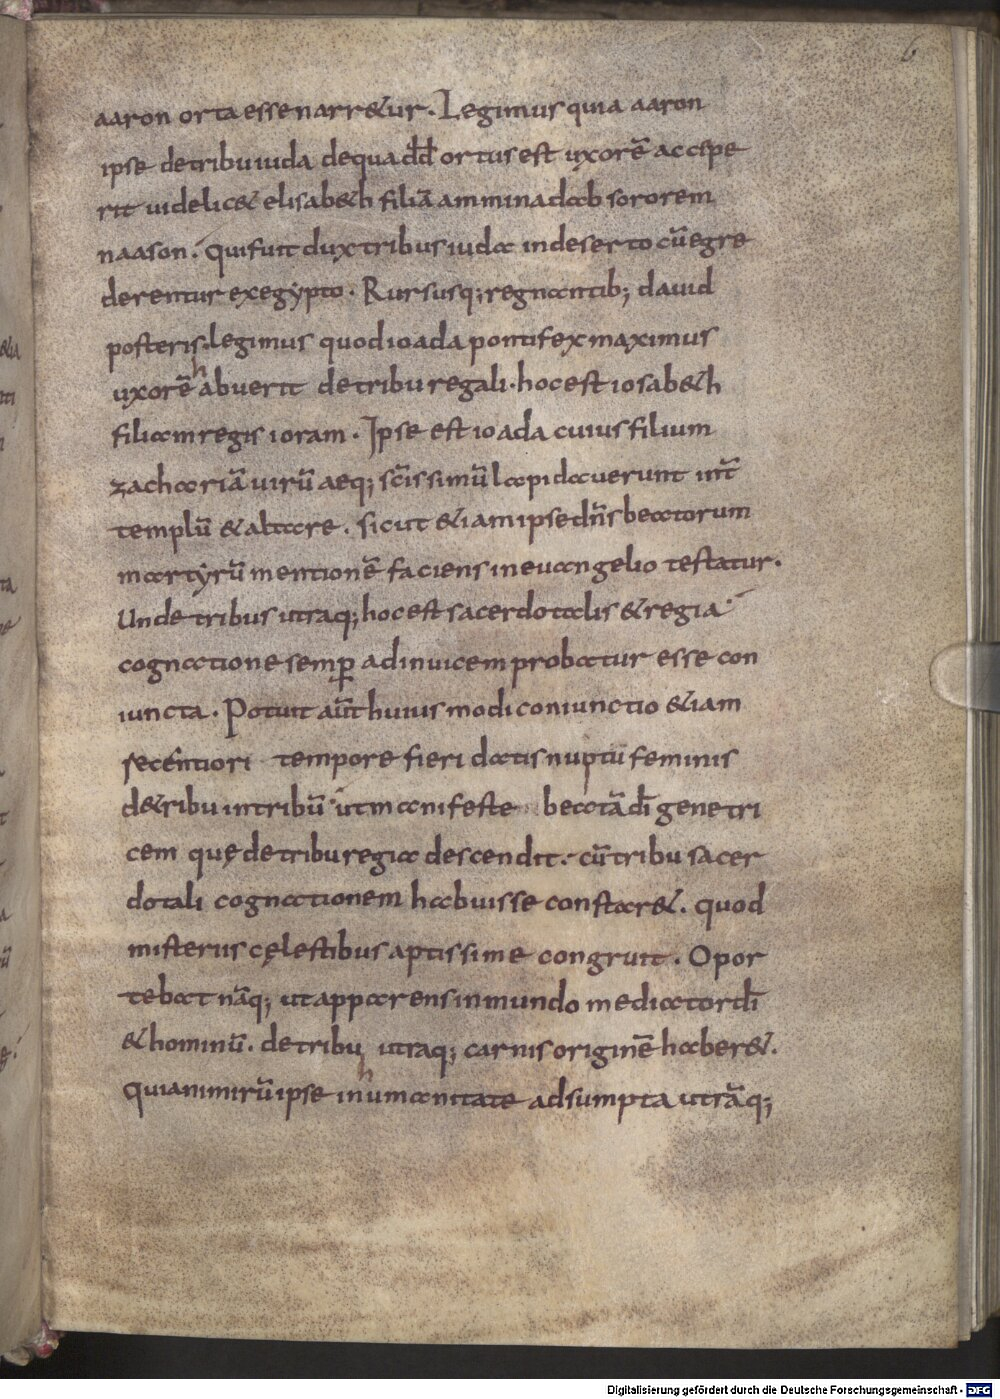 6
aaron orta esse narr&ur. Legimus quia aaron
ipse de tribu iuda de qua dd̄ ortus est uxorē acce pe
rit uidelic& elisab&h filiā amminadab sororem
naason. Qui fuit dux tribus iuda in deserto cū egre
derentur ex egypto. Rursusq; regnantib; dauid
posteris. legimus quod ioada pontifex maximus
uxorē habuerit de tribu regali. hoc est iosab&h
filiam regis ioram. Ipse est ioada cuius filium
zachariā uirū aeq; sc̄issimū lapidauerunt int̄
templū & altare. sicut &iam ipse dn̄s beatorum
martyrū mentionē faciens in euangelio testatur.
Unde tribus utraq; hoc est sacerdotalis & regia
cognatione semp̄ adinuicem probatur esse con
iuncta. Potuit aūt huiusmodi coniunctio &iam
recentiori tempore fieri datis nuptū feminis
d& tribu in tribū ut manifeste beatā dī genetri
cem quę de tribu regia descendit. cū tribu sacer
dotali cognationem habuisse constar&. quod
misteriis cęlestibus aptissime congruit. Opor
tebat nāq; ut apparens in mundo mediator dī
& hominū. de tribu utraq; carnis originē haber&.
Quia nimirū ipse in humanitate adsumpta utrāq;
Digitalisierung gefördert durch die Deutsche Forschungsgemeinschaft - DFG